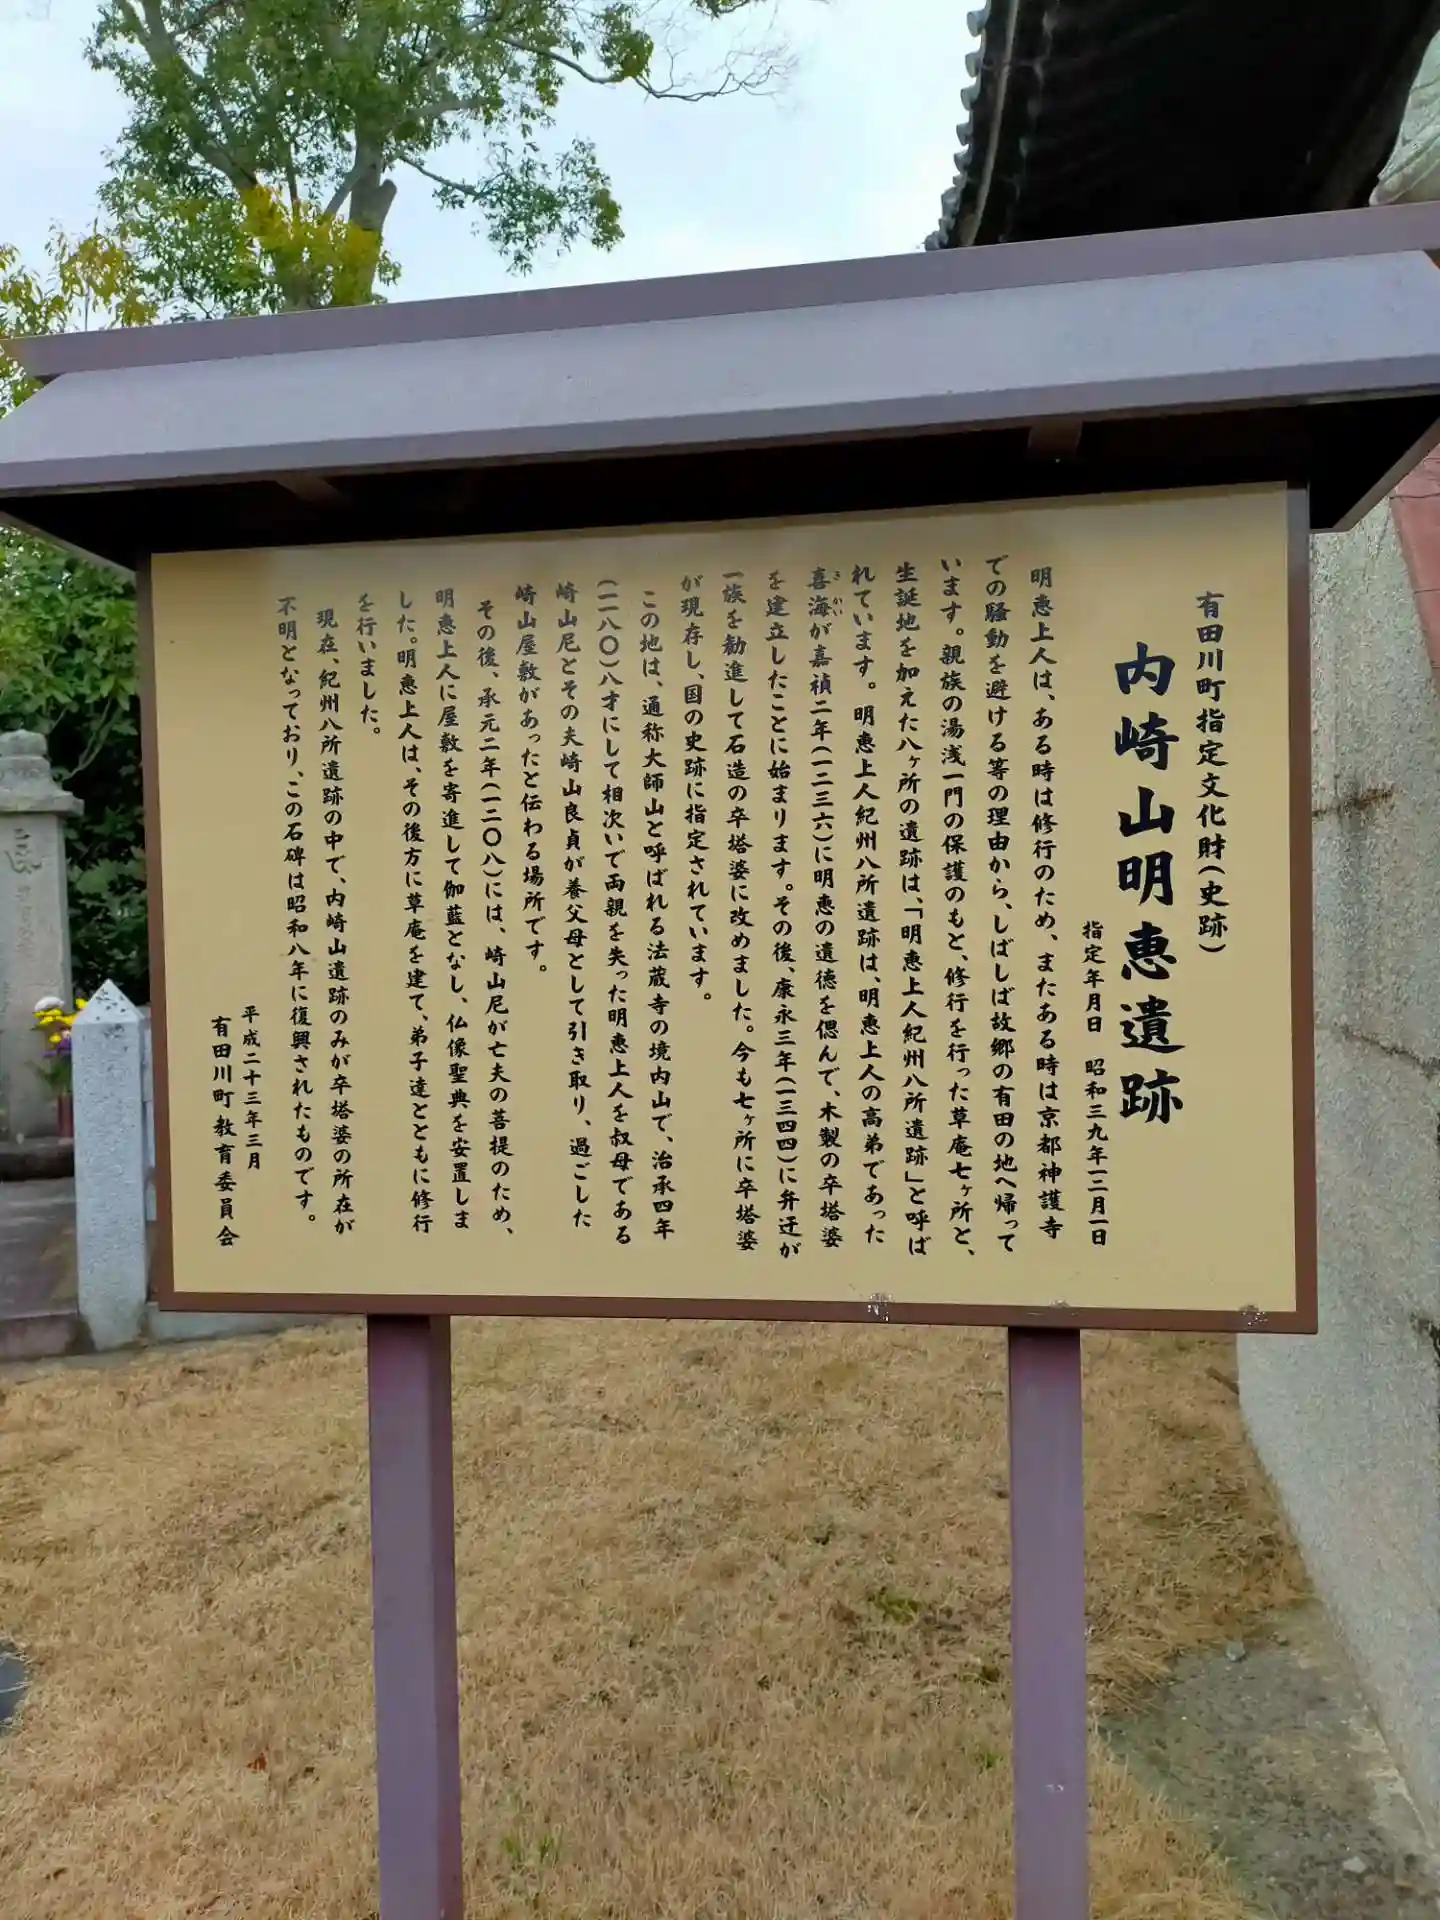 有田川町指定文化財(史跡)
内崎山明恵遺跡
指定年月日 昭和三九年一二月一日
明恵上人は、ある時は修行のため、またある時は京都神護寺
での騒動を避ける等の理由から、しばしば故郷の有田の地へ帰って
います。親族の湯浅一門の保護のもと、修行を行った草庵七ヶ所と、
生誕地を加えた八ヶ所の遺跡は、「明恵上人紀州八所遺跡」と呼ば
れています。明恵上人紀州八所遺跡は、明恵上人の高弟であった
喜海が嘉禎二年(一二三六)に明恵の遺徳を偲んで、木製の卒塔婆
きかい
を建立したことに始まります。その後、康永三年(一三四四)に弁迂が
一族を勧進して石造の卒塔婆に改めました。今も七ヶ所に卒塔婆
が現存し、国の史跡に指定されています。
この地は、通称大師山と呼ばれる法蔵寺の境内山で、治承四年
(一一八〇)八才にして相次いで両親を失った明恵上人を叔母である
崎山尼とその夫崎山良貞が養父母として引き取り、過ごした
崎山屋敷があったと伝わる場所です。
その後、承元二年(一二〇八)には、崎山尼が亡夫の菩提のため、
明恵上人に屋敷を寄進して伽藍となし、仏像聖典を安置しま
した。明恵上人は、その後方に草庵を建て、弟子達とともに修行
を行いました。
現在、紀州八所遺跡の中で、内崎山遺跡のみが卒塔婆の所在が
不明となっており、この石碑は昭和八年に復興されたものです。
平成二十三年三月
有田川町教育委員会